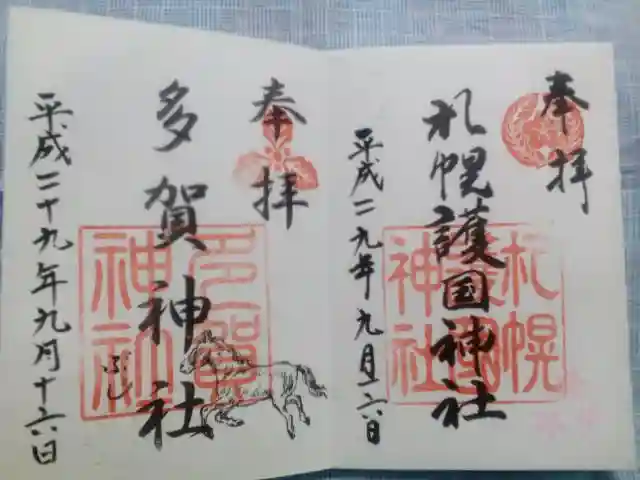 奉拝
札幌護国神社
平成二九年九月一六日
札幌
護国
神社
奉拝
多賀神社
平成二十九年九月十六日
多賀
神社